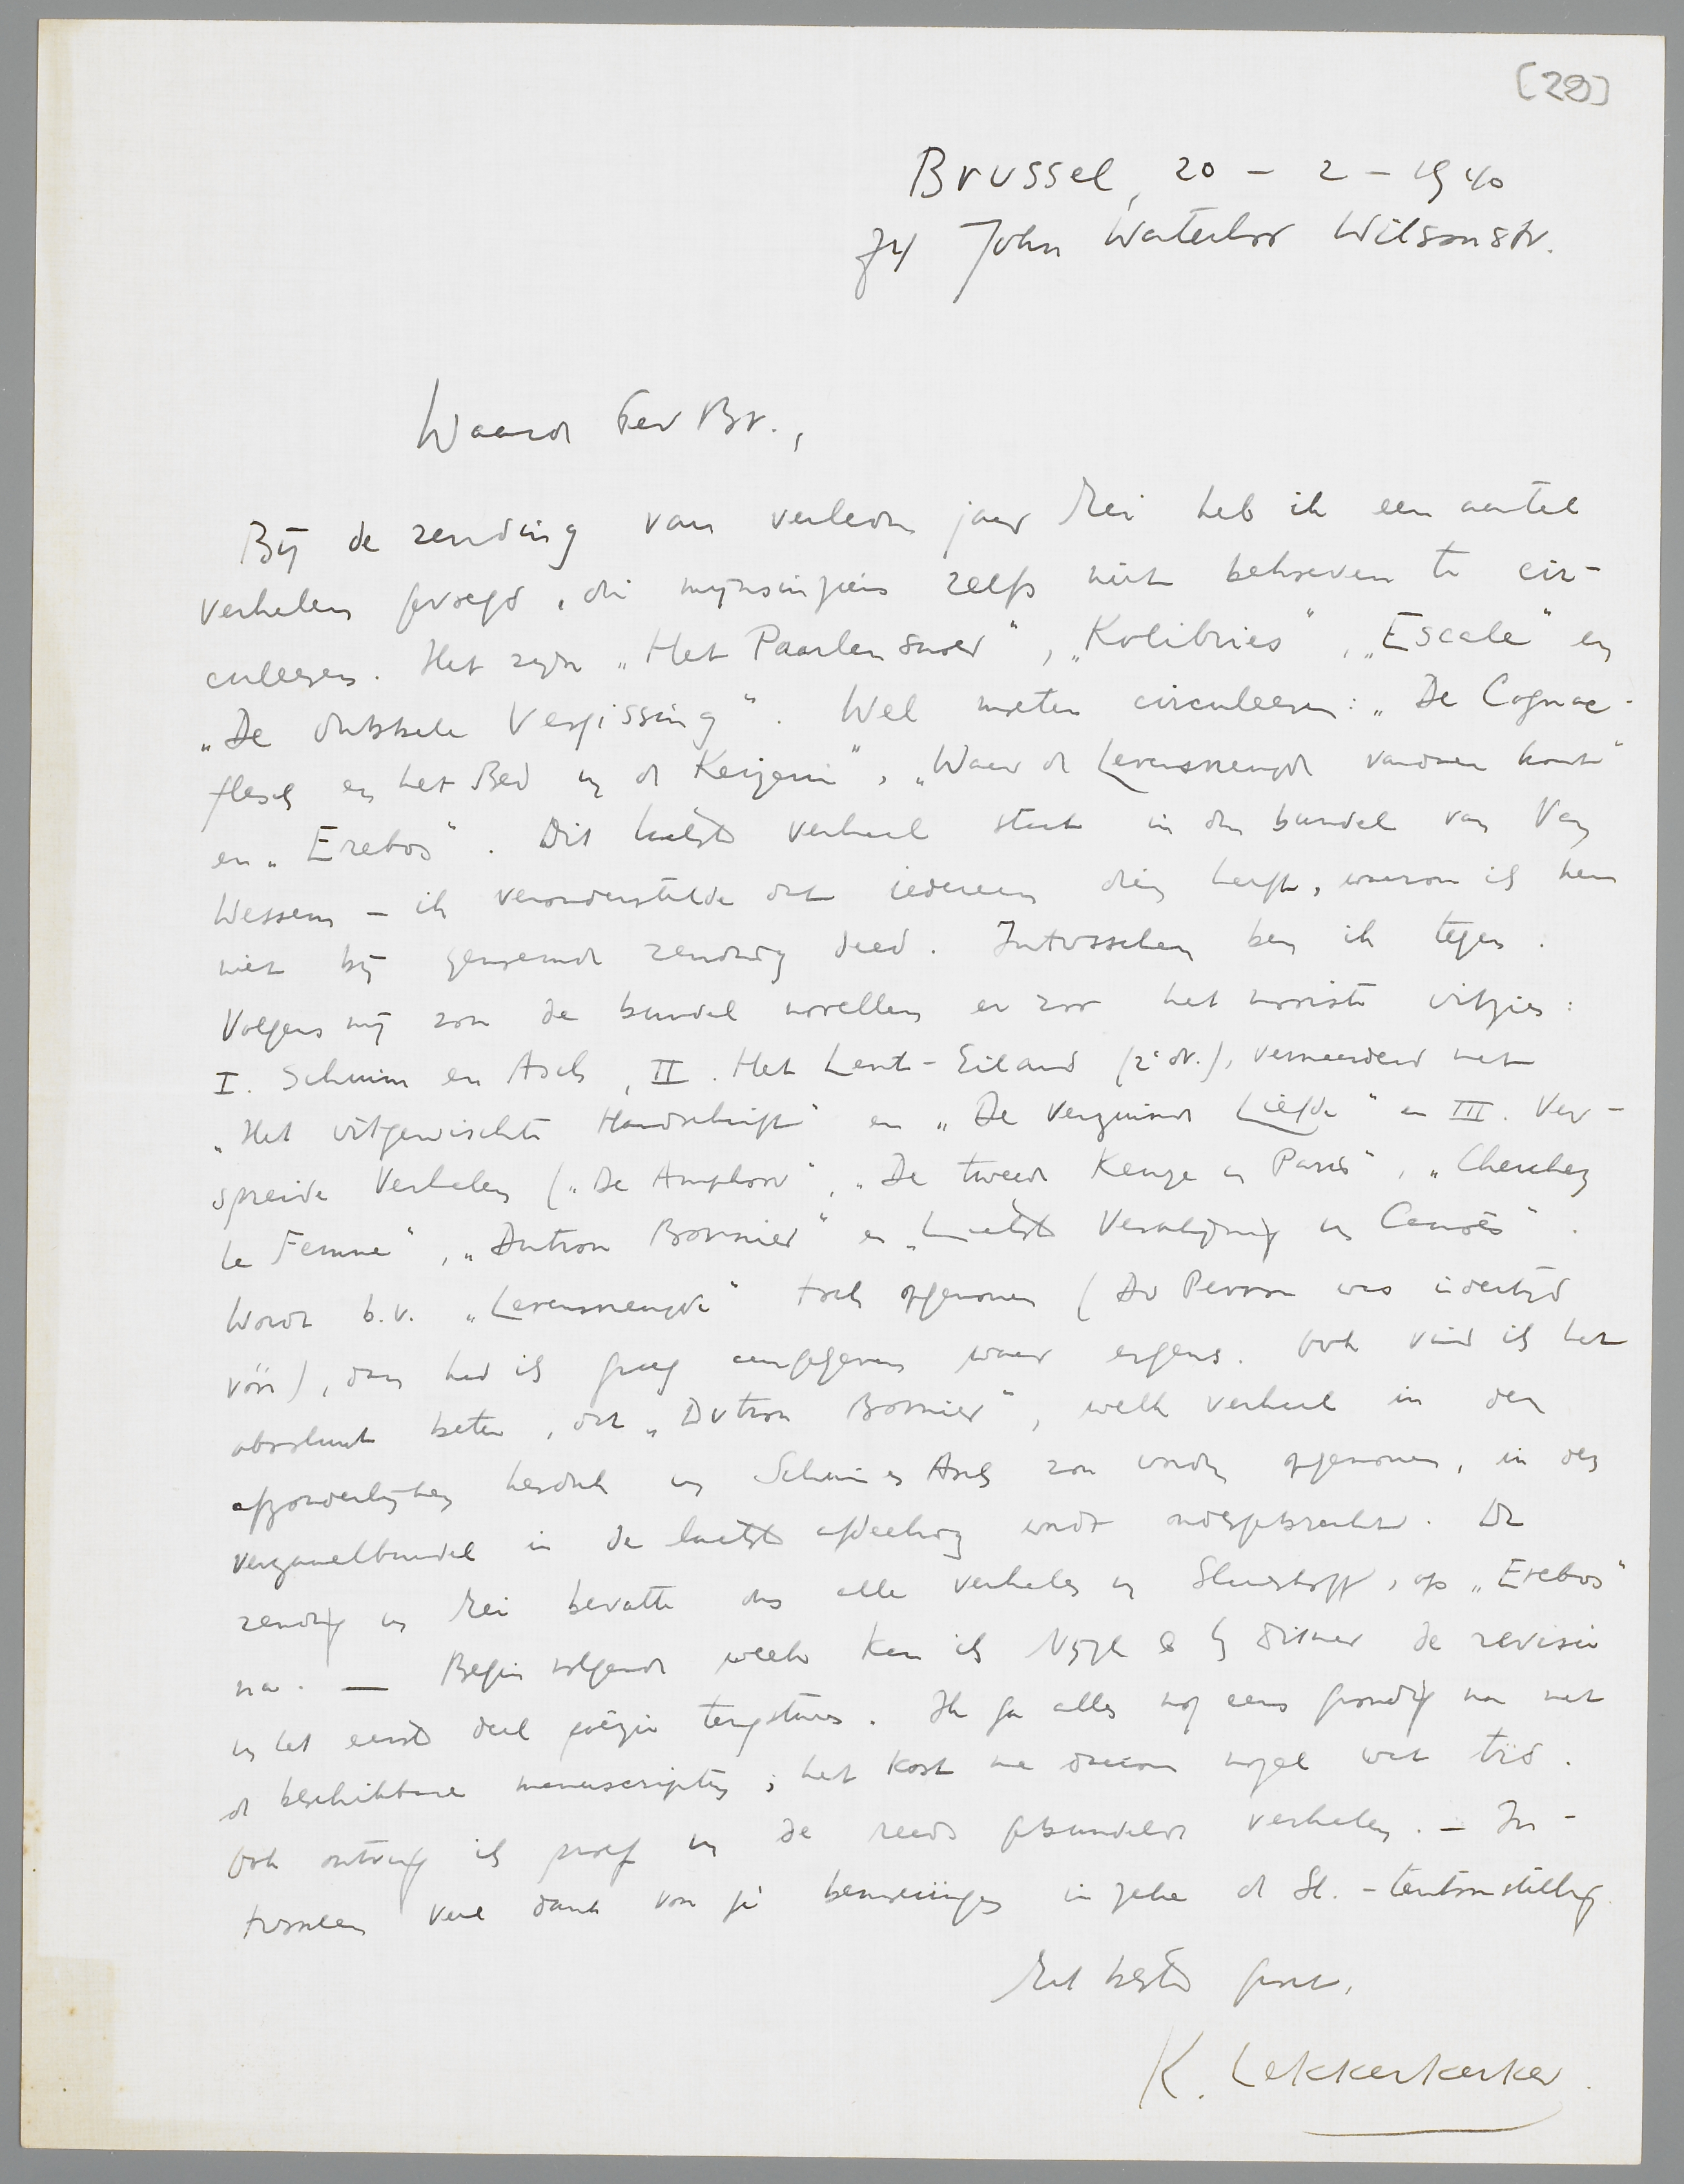 [29]
Brussel, 20 - 2 - 1940
74 John Waterloo Wilsonstr.
Waarde Ter Br.,
Bij de zending van verleden jaar Mei heb ik een aantal
verhalen gevoegd, die mijnsinziens zelfs niet behoeven te cir-
culeeren. Het zijn „Het Paarlensnoer", „Kolibries", „Escale" en
„De dubbele Vergissing". Wel moeten circuleeren: „De Cognac-
flesch en het Bed v/d Keizerin", „Waar de Levensvreugde vandaan komt"
en „Erebos". Dit laatste verhaal staat in den bundel van Van
Wessem - ik veronderstelde dat iedereen dien heeft, waarom ik hem
niet bij genoemde zending deed. Intusschen ben ik tegen.
Volgens mij zou de bundel novellen er zoo het mooiste uitzien:
I. Schuim en Asch, II. Het Lente-Eiland (2e dr.), vermeerderd met
„Het uitgewischte Handschrift" en „De Verguisde Liefde" en III. Ver-
spreide Verhalen („De Amphoor", „De tweede Keuze v. Paris", „Cherchez
la Femme", „Dutrou Bornier" en „Laatste Verschijning v. Camoës".
Wordt b.v. „Levensvreugde" toch opgenomen (Du Perron was indertijd
vóór), dan had ik graag aangegeven waar ergens. Ook vind ik het
absoluut beter, dat „Dutrou Bornier", welk verhaal in den
afzonderlijken herdruk v. Schuim en Asch zou worden opgenomen, in den
verzamelbundel in de laatste afdeeling wordt ondergebracht. De
zending v. Mei bevatte dus alle verhalen v. Slauerhoff, op „Erebos"
na. — Begin volgende week kan ik Nijgh & v. Ditmar de revisie
v. het eerste deel poëzie terugsturen. Ik ga alles nog eens grondig na met
de beschikbare manuscripten; het kost me daarom nogal wat tijd.
Ook ontving ik proef v. de reeds gebundelde verhalen. - In-
tusschen veel dank voor je bemoeiingen inzake de Sl.-tentoonstelling.
Met beste groet,
K. Lekkerkerker.